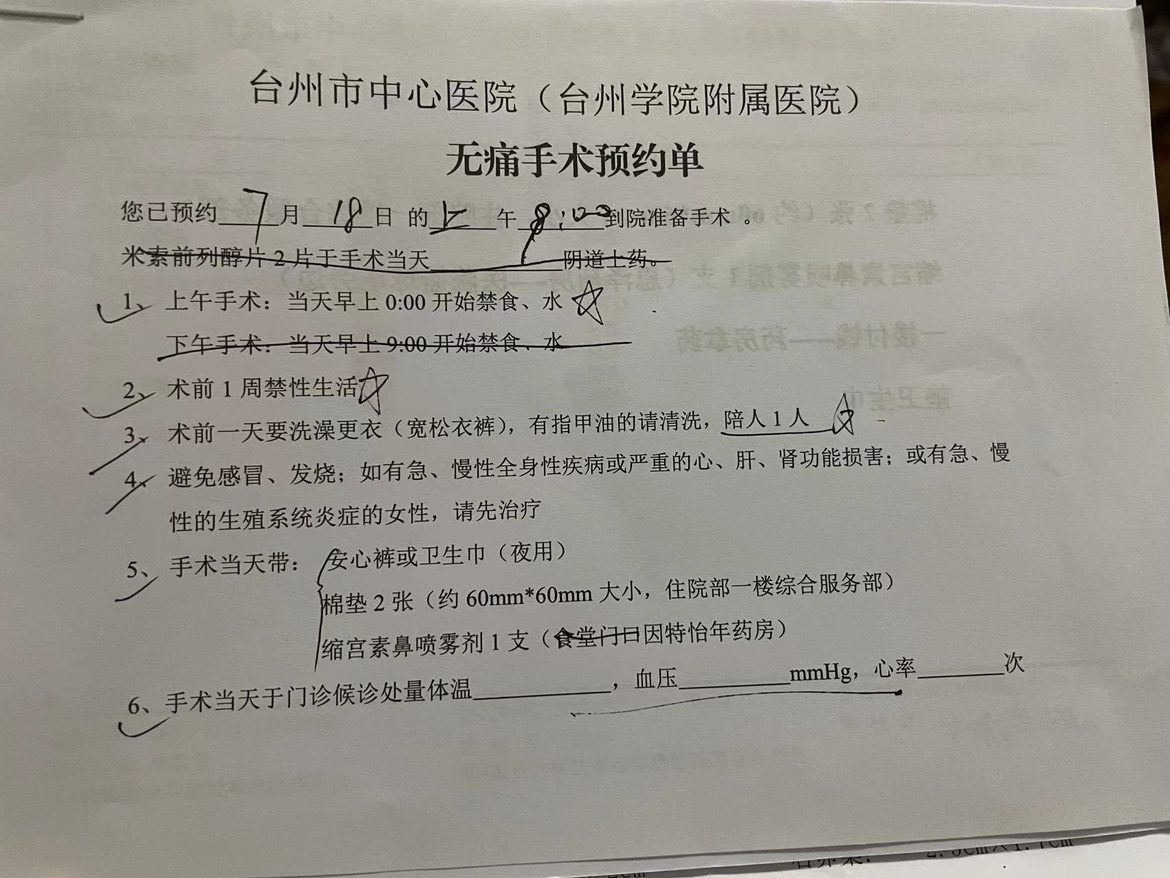 台州市中心医院（台州学院附属医院）
无痛手术预约单
您已预约 7 月 18 日 的 上 午 8:00 到院准备手术 。
米索前列醇片 2 片于手术当天________阴道上药。
1、 上午手术：当天早上 0:00 开始禁食、水 ☆
下午手术：当天早上 9:00 开始禁食、水
2、 术前 1 周禁性生活 ☆
3、 术前一天要洗澡更衣（宽松衣裤），有指甲油的请清洗，陪人 1 人 ☆
4、 避免感冒、发烧；如有急、慢性全身性疾病或严重的心、肝、肾功能损害；或有急、慢
性的生殖系统炎症的女性，请先治疗
5、 手术当天带： 安心裤或卫生巾（夜用）
棉垫 2 张（约 60mm*60mm 大小，住院部一楼综合服务部）
缩宫素鼻喷雾剂 1 支（食堂门口因特怡年药房）
6、手术当天于门诊候诊处量体温________，血压________mmHg，心率________次